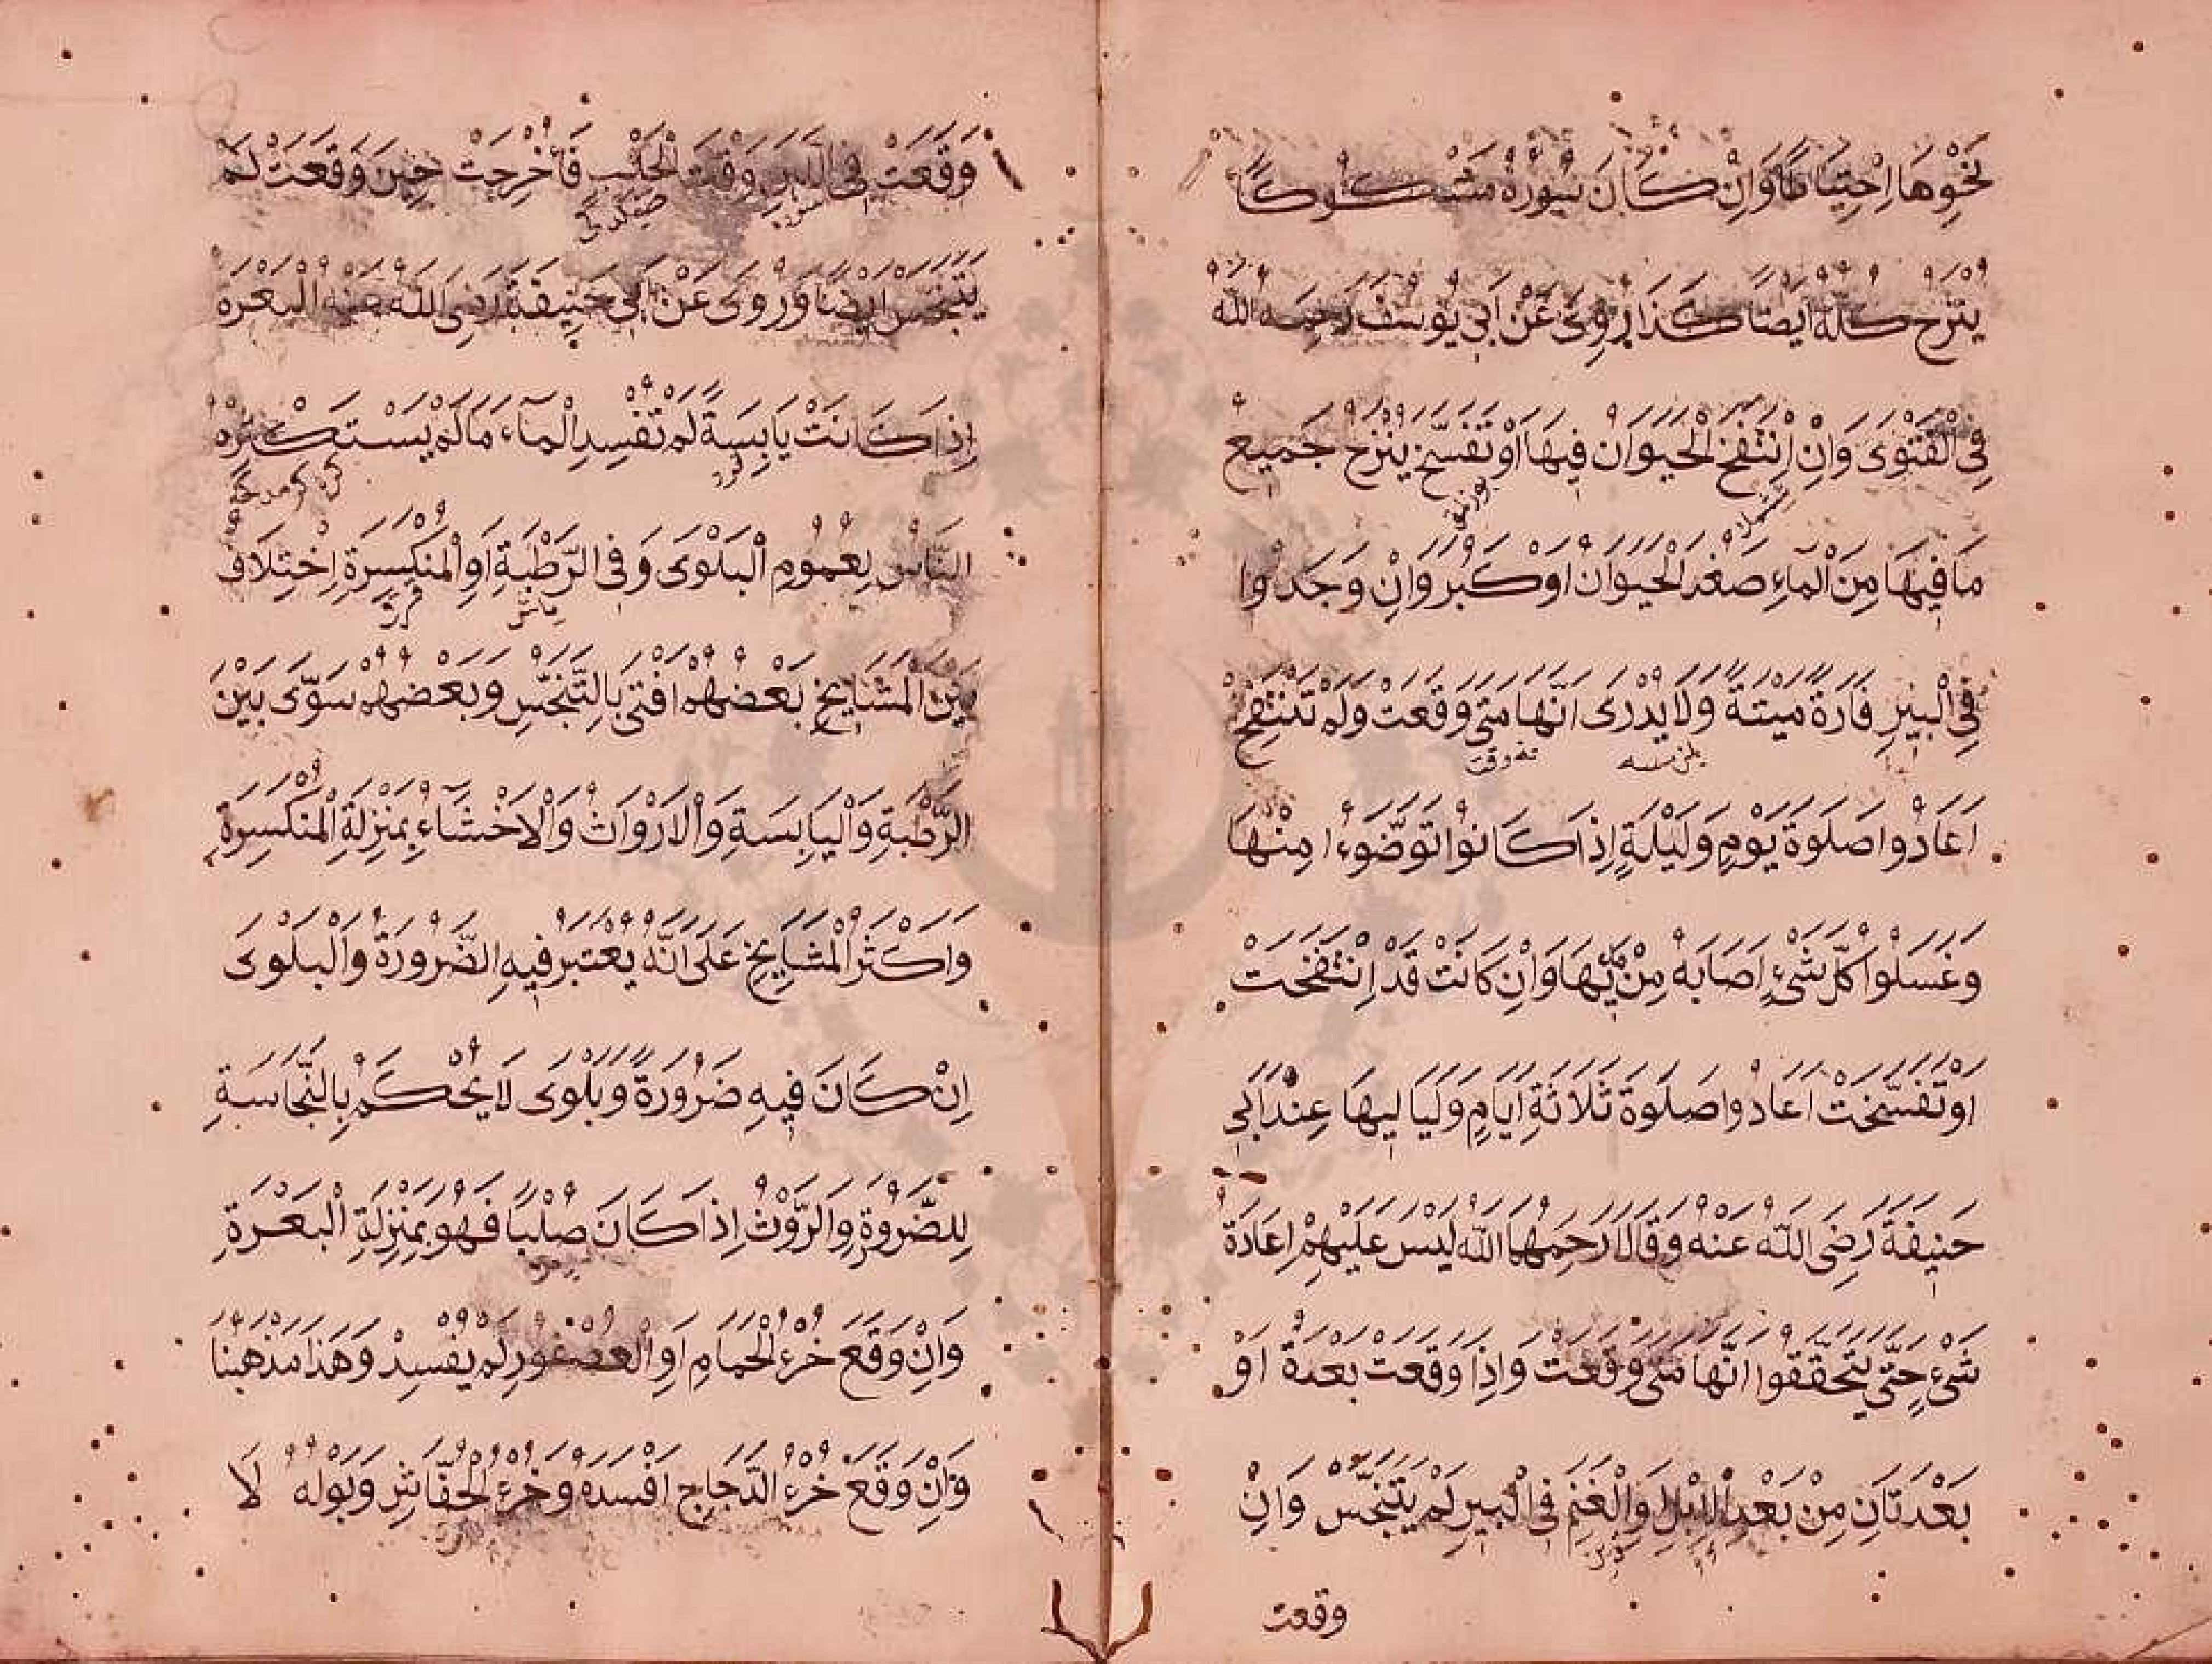 نَحْوِهَا اِحْتِيَاطًا وَاِنْ كَانَ سُوْرُهُ مَشْكُوكًا
يُنْزَحُ كُلُّهُ اَيْضًا كَذَا رُوِىَ عَنْ اَبِى يُوسُفَ رَحِمَهُ اللّٰهُ
فِى الْفَتْوٰى وَاِنْ اِنْتَفَخَ الْحَيَوَانُ فِيهَا اَوْ تَفَسَّخَ يُنْزَحُ جَمِيعُ
مَا فِيهَا مِنَ الْمَآءِ صَغُرَ الْحَيَوَانُ اَوْ كَبُرَ وَاِنْ وَجَدُوا
فِى الْبِيرِ فَارَةً مَيْتَةً وَلَا يُدْرٰى اَنَّهَا مَتٰى وَقَعَتْ وَلَمْ تَنْتَفِخْ
اَعَادُوا صَلٰوةَ يَوْمٍ وَلَيْلَةٍ اِذَا كَانُوا تَوَضَّوءُا مِنْهَا
وَغَسَلُوا كُلَّ شَىْءٍ اَصَابَهُ مِنْ مَّائِهَا وَاِنْ كَانَتْ قَدْ اِنْتَفَخَتْ
اَوْ تَفَسَّخَتْ اَعَادُوا صَلٰوةَ ثَلَاثَةِ اَيَّامٍ وَلَيَالِيهَا عِنْدَ اَبِى
حَنِيفَةَ رَضِىَ اللّٰهُ عَنْهُ وَقَالَا رَحِمَهُمَا اللّٰهُ لَيْسَ عَلَيْهِمْ اِعَادَةُ
شَىْءٍ حَتّٰى يَتَحَقَّقُوا اَنَّهَا مَتٰى وَقَعَتْ وَاِذَا وَقَعَتْ بَعْدَةٌ اَوْ
بَعْدَتَانِ مِنْ بَعْدِ الْاِبِلِ وَالْغَنَمِ فِى الْبِيرِ لَمْ يَتَنَجَّسْ وَاِنْ
وقعت
وَقَعَتْ فِى اللَّبَنِ وَقْتَ الْحَلْبِ فَاُخْرِجَتْ حِينَ وَقَعَتْ لَمْ
يَتَنَجَّسْ اَيْضًا وَرُوِىَ عَنْ اَبِى حَنِيفَةَ رَضِىَ اللّٰهُ عَنْهُ الْبَعْرَةُ
اِذَا كَانَتْ يَابِسَةً لَمْ تُفْسِدِ الْمَآءَ مَا لَمْ يَسْتَكْثِرْهُ
النَّاسُ لِعُمُومِ الْبَلْوٰى وَفِى الرَّطْبَةِ اَوِ الْمُنْكَسِرَةِ اِخْتِلَافُ
بَيْنَ الْمَشَايِخِ بَعْضُهُمْ اَفْتٰى بِالتَّنَجُّسِ وَبَعْضُهُمْ سَوّٰى بَيْنَ
الرَّطْبَةِ وَالْيَابِسَةِ وَالْاَرْوَاثُ وَالْاَخْثَآءُ بِمَنْزِلَةِ الْمُنْكَسِرَةِ
وَاَكْثَرُ الْمَشَايِخِ عَلٰى اَنَّهُ يُعْتَبَرُ فِيهِ الضَّرُورَةُ وَالْبَلْوٰى
اِنْ كَانَ فِيهِ ضَرُورَةٌ وَبَلْوٰى لَا يُحْكَمُ بِالنَّجَاسَةِ
لِلضَّرُوةِ وَالرَّوْثُ اِذَا كَانَ صُلْبًا فَهُوَ بِمَنْزِلَةِ الْبَعْرَةِ
وَاِنْ وَقَعَ خُرْءُ الْحَمَامِ اَوِ الْعُصْفُورِ لَمْ يُفْسِدْ وَهٰذَا مَذْهَبُنَا
وَاِنْ وَقَعَ خُرْءُ الدَّجَاجِ اَفْسَدَهُ وَخُرْءُ الْخُفَّاشِ وَبَوْلُهُ لَا